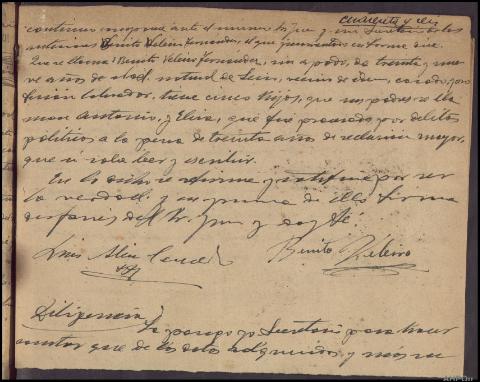 cuarenta y seis
continuo comparece ante el mismo Sr. Juez y mi Secretario los
anteriores Benito Veleiro Fernandez, el que juramentado en forma dice
Que se llama Benito Veleiro Fernandez, sin apodo, de treinta y nue
ve años de edad, natural de vecino de casado, pro
fesión labrador, tiene cinco hijos, que sus padres se lla
man Antonio y Elisa, que fue procesado por delitos
políticos a la pena de treinta años de reclusión mayor,
que si sabe leer y escribir.
En lo dicho se afirma y ratifica por ser
la verdad y en prueba de ello firma
después del Sr. Juez y doy fé
Luis Benito Veleiro
Diligencia) La pongo yo Secretario para hacer
constar que de los datos adquiridos y más